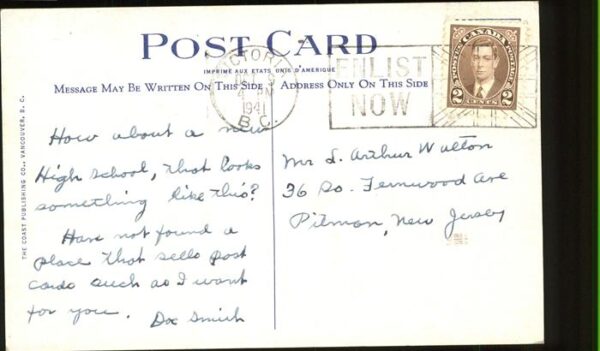 POST CARD
IMPRIME AUX ETATS UNIS D'AMERIQUE
MESSAGE MAY BE WRITTEN ON THIS SIDE
ADDRESS ONLY ON THIS SIDE
THE COAST PUBLISHING CO., VANCOUVER, B. C.
VICTORIA
PM
1941
B.C.
ENLIST
NOW
POSTES CANADA POSTAGE
2 CENTS 2
How about a new
High School, that looks
something like this?
Have not found a
place that sells post
cards such as I want
for you.
Doc Smith
Mr L. Arthur Walton
36 So. Fernwood Ave
Pitman, New Jersey